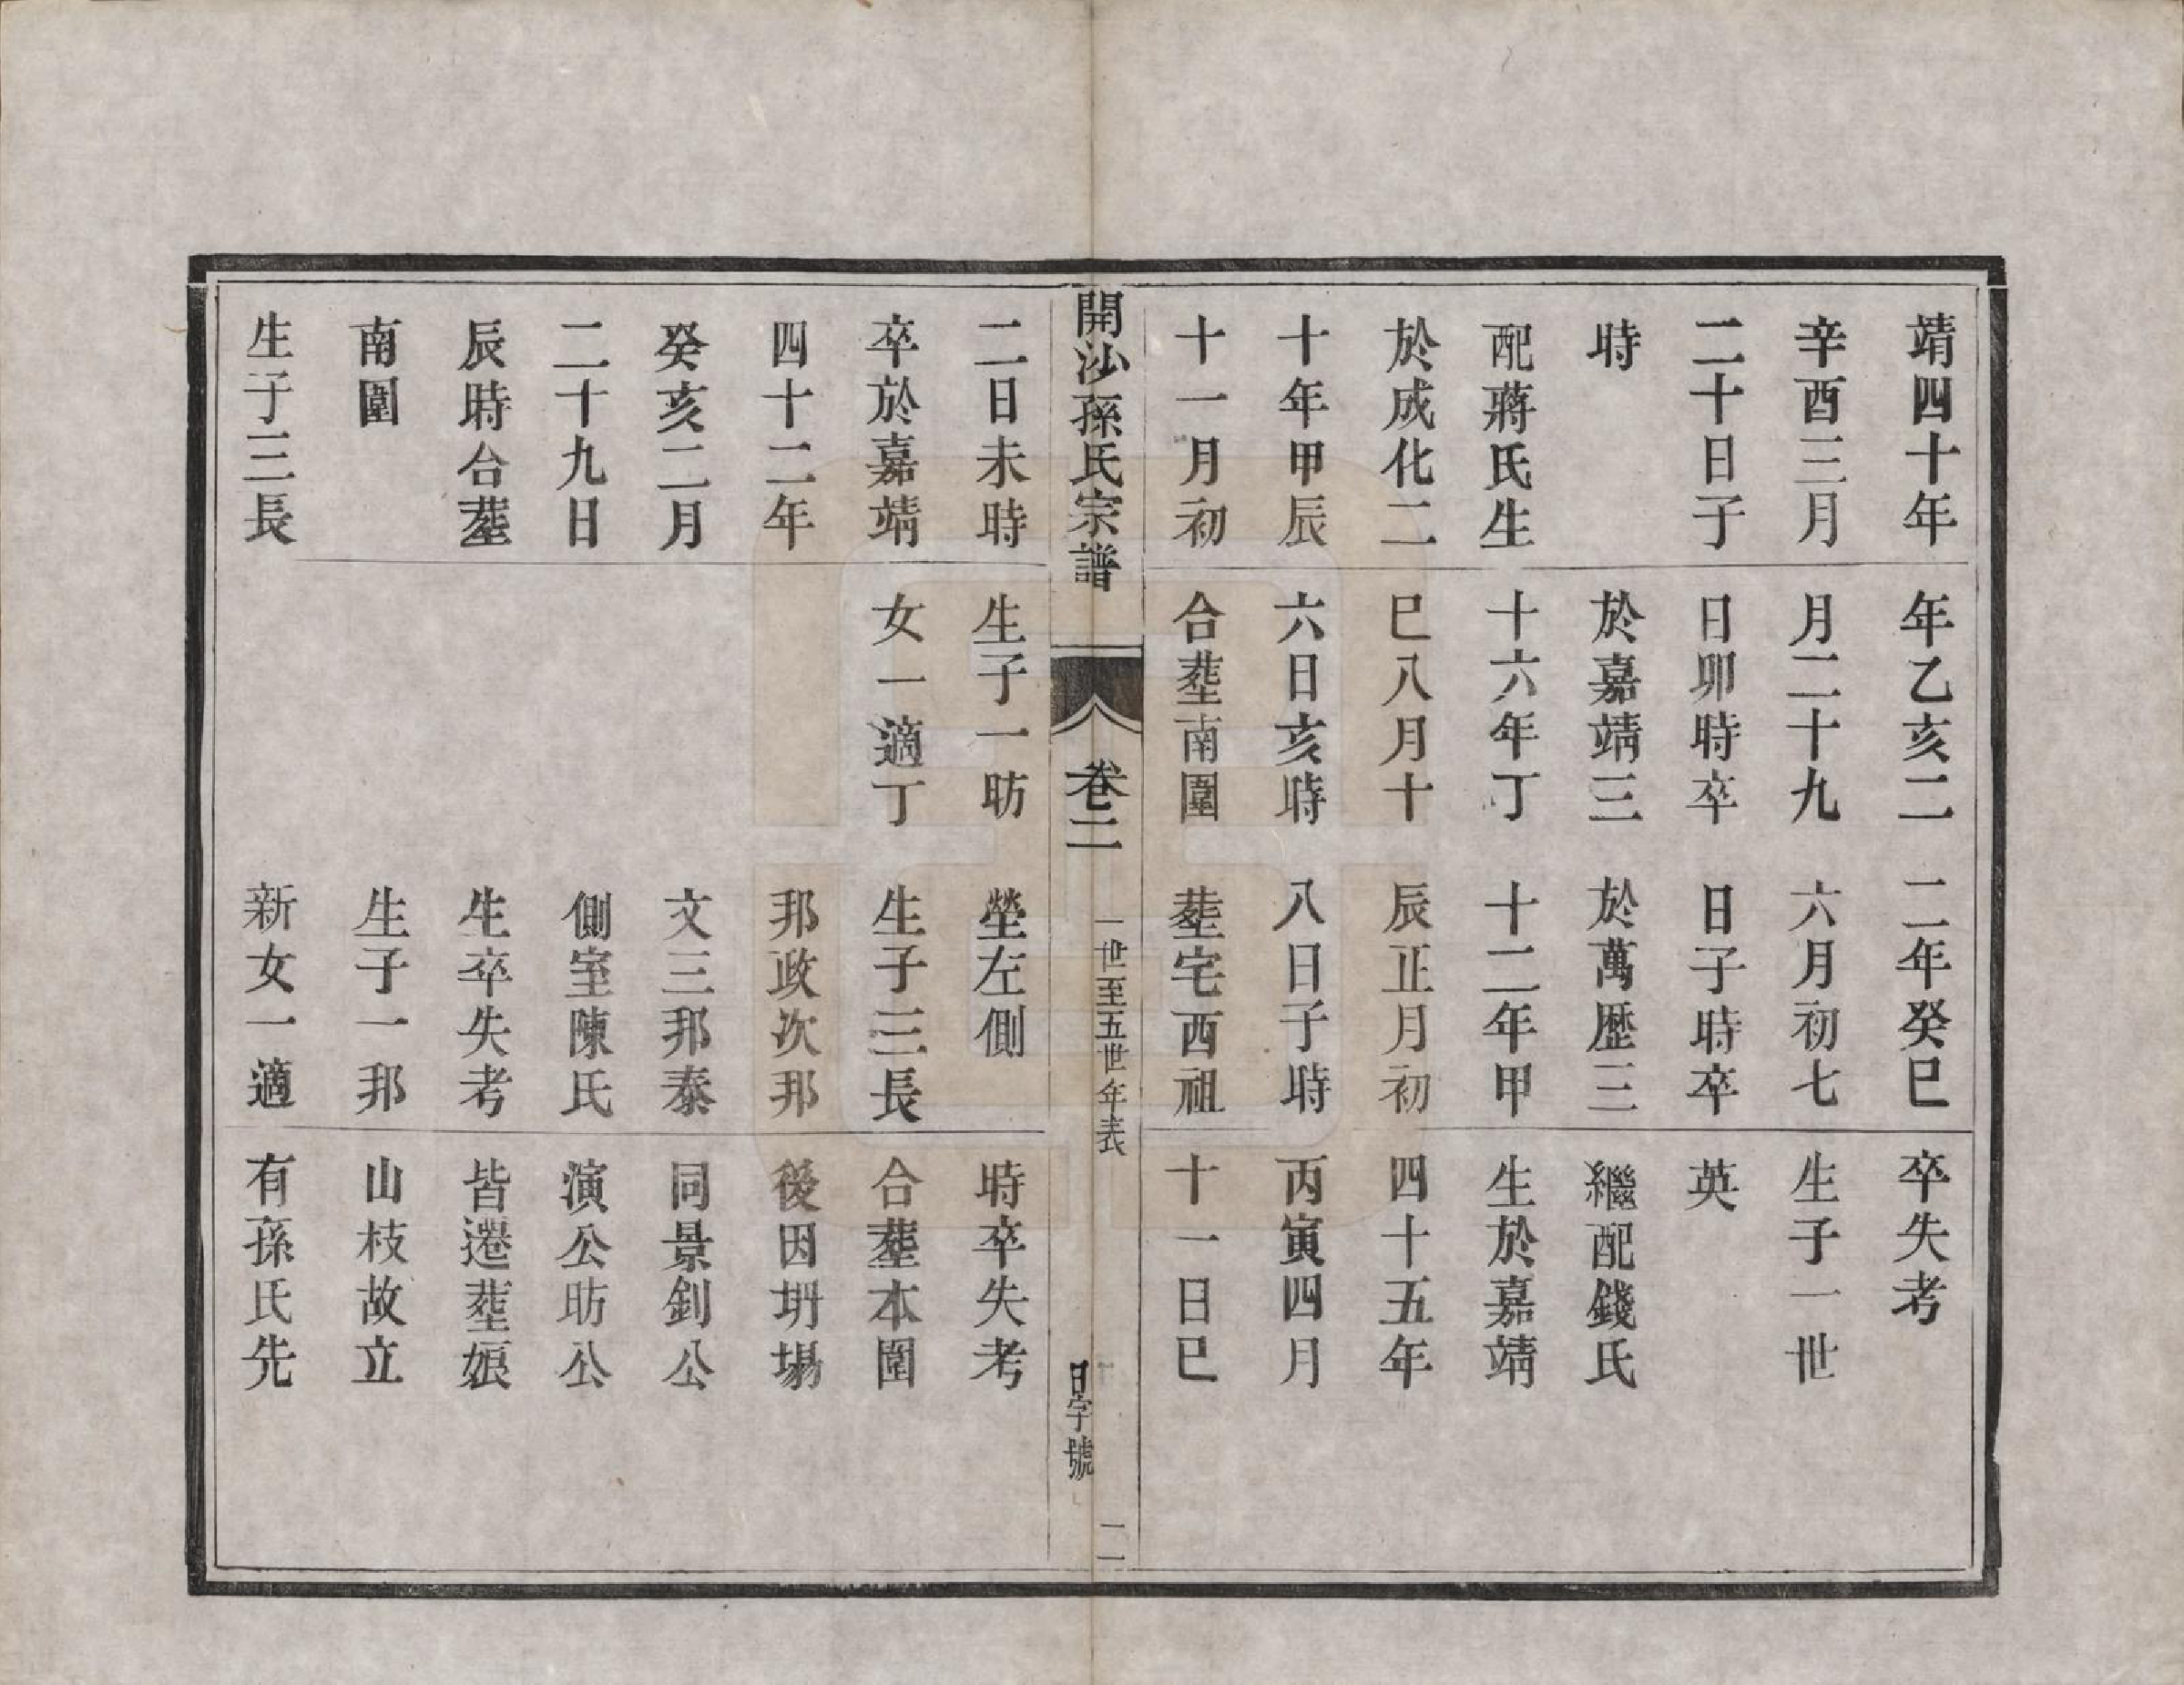 靖四十年
辛酉三月
二十日子
時
配蔣氏生
於成化二
十年甲辰
十一月初
年乙亥二
月二十九
日卯時卒
於嘉靖三
十六年丁
巳八月十
六日亥時
合塟南圍
二年癸巳
六月初七
日子時卒
於萬歷三
十二年甲
辰正月初
八日子時
塟宅西祖
卒失考
生子一世
英
繼配錢氏
生於嘉靖
四十五年
丙寅四月
十一日巳
開沙孫氏宗譜
卷二
一世至五世年表
日字號
二
二日未時
卒於嘉靖
四十二年
癸亥二月
二十九日
辰時台塟
南圍
生子三長
生子一昉
女一適丁
塋左側
生子三長
邦政次邦
文三邦泰
側室陳氏
生卒失考
生子一邦
新女一適
時卒失考
合塟本圍
後因坍塌
同景釗公
演公昉公
皆遷塟娘
山枝故立
有孫氏先